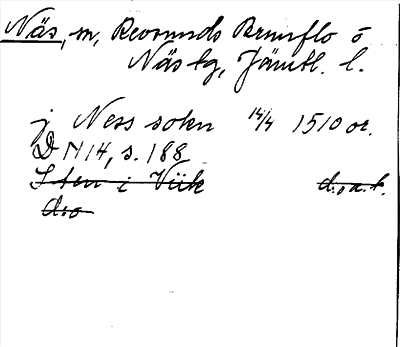 Näs, m, Revsunds Brunflo o
Näs tg, Jämtl. l.
j Ness sokn 14/4 1510 or.
DN14, s. 188
Sten i Viik d:o a. t.
d:o